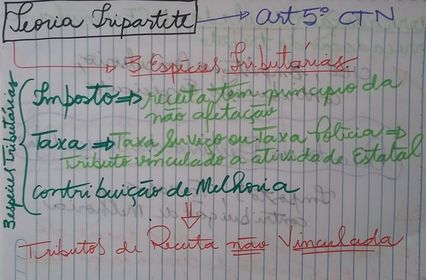 Teoria Tripartite → Art 5º CTN
→ 3 Espécies Tributárias.
3 espécies tributárias
Imposto ⇒ receita têm princípio da
não afetação
Taxa ⇒ Taxa serviço ou Taxa Polícia ⇒
Tributo vinculado a atividade Estatal
Contribuição de Melhoria
Tributos de Receita não Vinculada